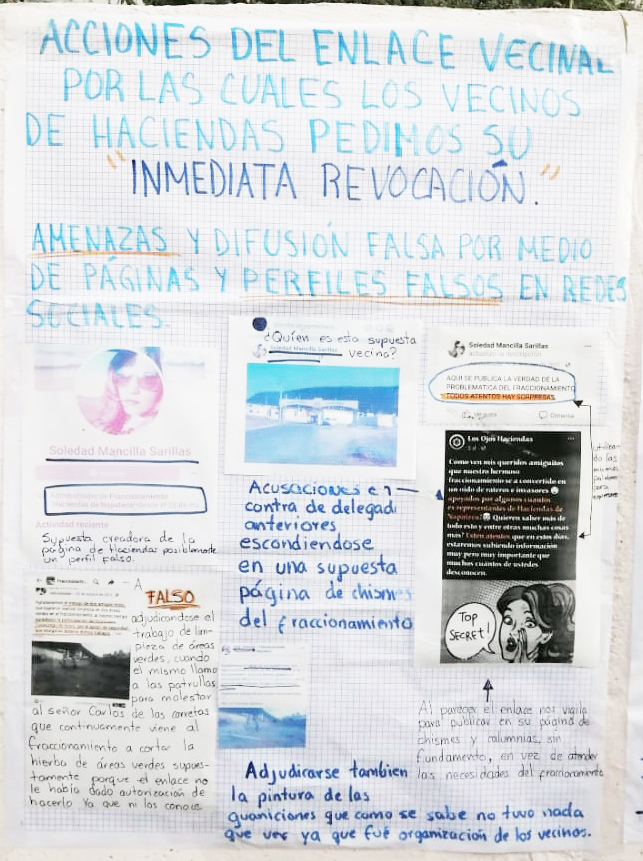 ACCIONES DEL ENLACE VECINAL
POR LAS CUALES LOS VECINOS
DE HACIENDAS PEDIMOS SU
"INMEDIATA REVOCACIÓN."
AMENAZAS Y DIFUSIÓN FALSA POR MEDIO
DE PÁGINAS Y PERFILES FALSOS EN REDES
SOCIALES
Soledad Mancilla Sarillas
Actividad reciente
Supuesta creadora de la
página de Haciendas posiblemente
un perfil falso.
¿Quién es esta supuesta
Soledad Mancilla Sarillas
vecina?
Acusaciones en
contra de delegad
anteriores
escondiendose
en una supuesta
página de chismes
del fraccionamiento
Soledad Mancilla Sarillas
AQUI SE PUBLICA LA VERDAD DE LA
PROBLEMATICA DEL FRACCIONAMIENTO
TODOS ATENTOS HAY SORPRESAS
Me gusta
Comentar
Los Ojos Haciendas
Como ven mis queridos amiguitos
que nuestro hermoso
fraccionamiento se a convertido en
un nido de rateros e invasores
apoyados por algunos cuantos
ex representantes de Haciendas de
Quieren saber más de
todo esto y entre otras muchas cosas
mas? Esten atentos que en estos días
estaremos subiendo información
muy pero muy importante que
muchos cuántos de ustedes
desconocen.
TOP
SECRET!
A
FALSO
adjudicandose el
trabajo de lim-
pieza de áreas
verdes, cuando
el mismo llamo
a las patrullas
para molestar
al señor Carlos de las carretas
que continuamente viene al
fraccionamiento a cortar la
hierba de áreas verdes supues-
tamente porque el enlace no
le había dado autorización de
hacerlo Ya que ni los conoce
Al parecer el enlace nos vigila
para publicar en su página de
chismes y calumnias, sin
fundamento, en vez de atender
las necesidades del fraccionamiento
Adjudicarse tambien
la pintura de las
guarniciones que como se sabe no tuvo nada
que ver ya que fué organización de los vecinos.